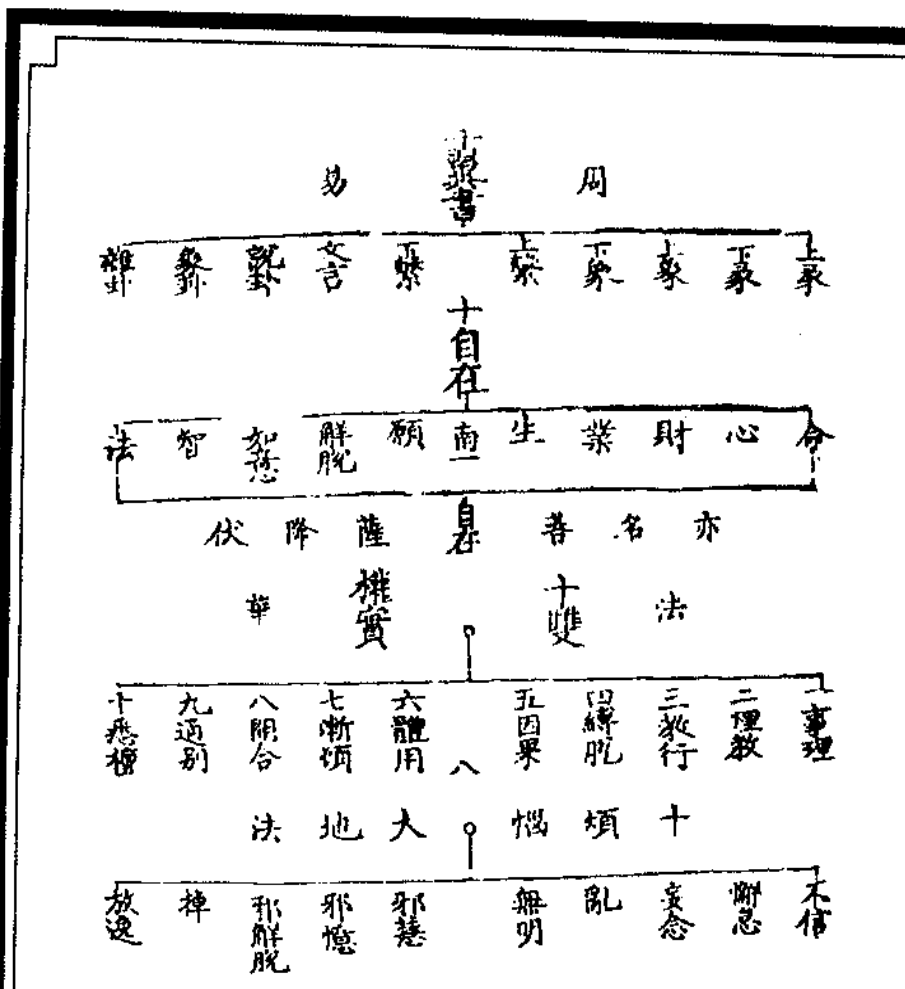 周 易
上彖 下彖 上象 下象 上繫 下繫 文言 說卦 雜卦
十自在
命 心 財 業 生 南一 願 解脫 如意 智 法
亦名菩 自在 薩降伏
法 十雙 權實 華
一事理 二理教 三教行 四縛脫 五因果 六體用 七漸頓 八開合 九通別 十悉檀
八
十煩惱大地法
不信 懈怠 妄念 亂 無明 邪慧 邪憶 邪解脫 掉 放逸